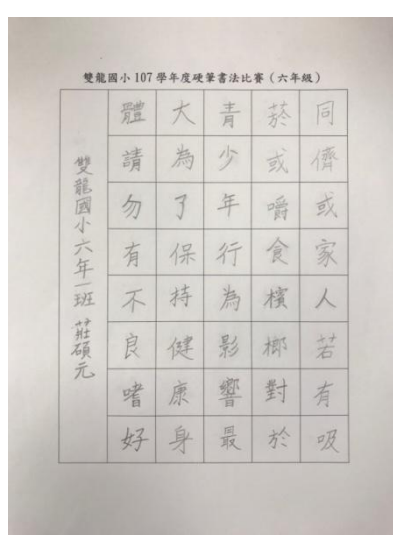 雙龍國小107學年度硬筆書法比賽（六年級）
同儕或家人若有吸
菸或嚼食檳榔對於
青少年行為影響最
大為了保持健康身
體請勿有不良嗜好
雙龍國小六年一班 莊碩元